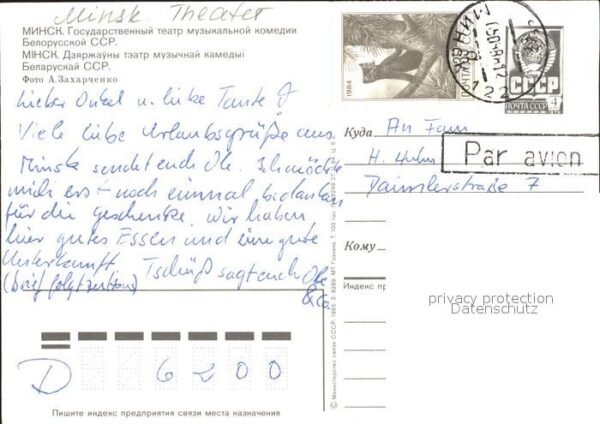 Minsk Theater
МИНСК. Государственный театр музыкальной комедии
Белорусской ССР.
МІНСК. Дзяржаўны тэатр музычнай камедыі
Беларускай ССР.
Фото А.Захарченко
Lieber Onkel u. liebe Tante
Viele liebe Urlaubsgrüße aus
Minsk sendet euch Ole. Ich möchte
mich erst noch einmal bedanken
für die Geschenke. Wir haben
hier gutes Essen und eine gute
Unterkunft. Tschüß sagt euch Ole
(Brief folgt)
& Co.
1984
ПОЧТА СССР
СССР
ПОЧТА СССР
4
МИНСК
722
Par avion
Куда An Fam
H. Huhn
Daimlerstraße 7
Кому
Индекс пр
privacy protection
Datenschutz
D 6200
Пишите индекс предприятия связи места назначения
© Министерство связи СССР. 1985